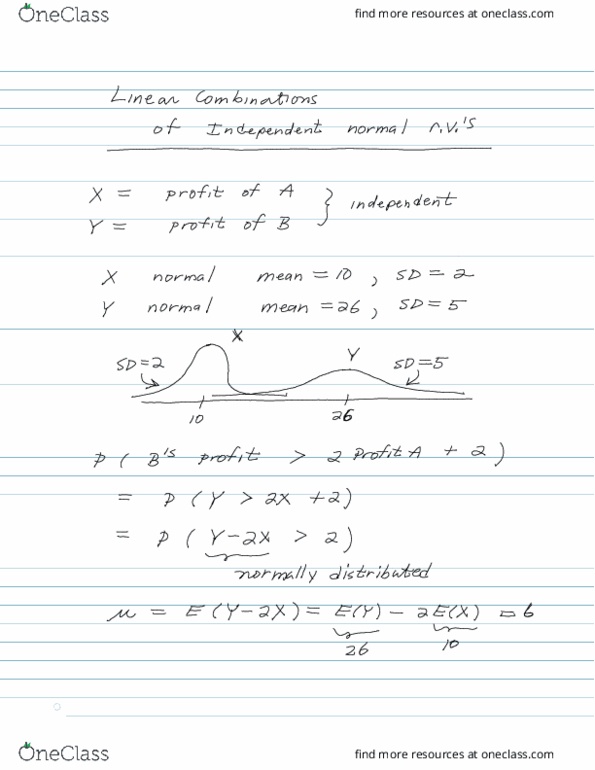 OneClass find more resources at oneclass.com
Linear Combinations
of Independent normal r.v.'s
X = profit of A
Y = profit of B } independent
X normal mean = 10, SD = 2
Y normal mean = 26, SD = 5
X
SD=2 Y SD=5
10 26
P ( B's profit > 2 Profit A + 2 )
= P ( Y > 2X + 2)
= P ( Y-2X > 2 )
normally distributed
μ = E (Y-2X) = E(Y) - 2E(X) = 6
26 10
OneClass find more resources at oneclass.com